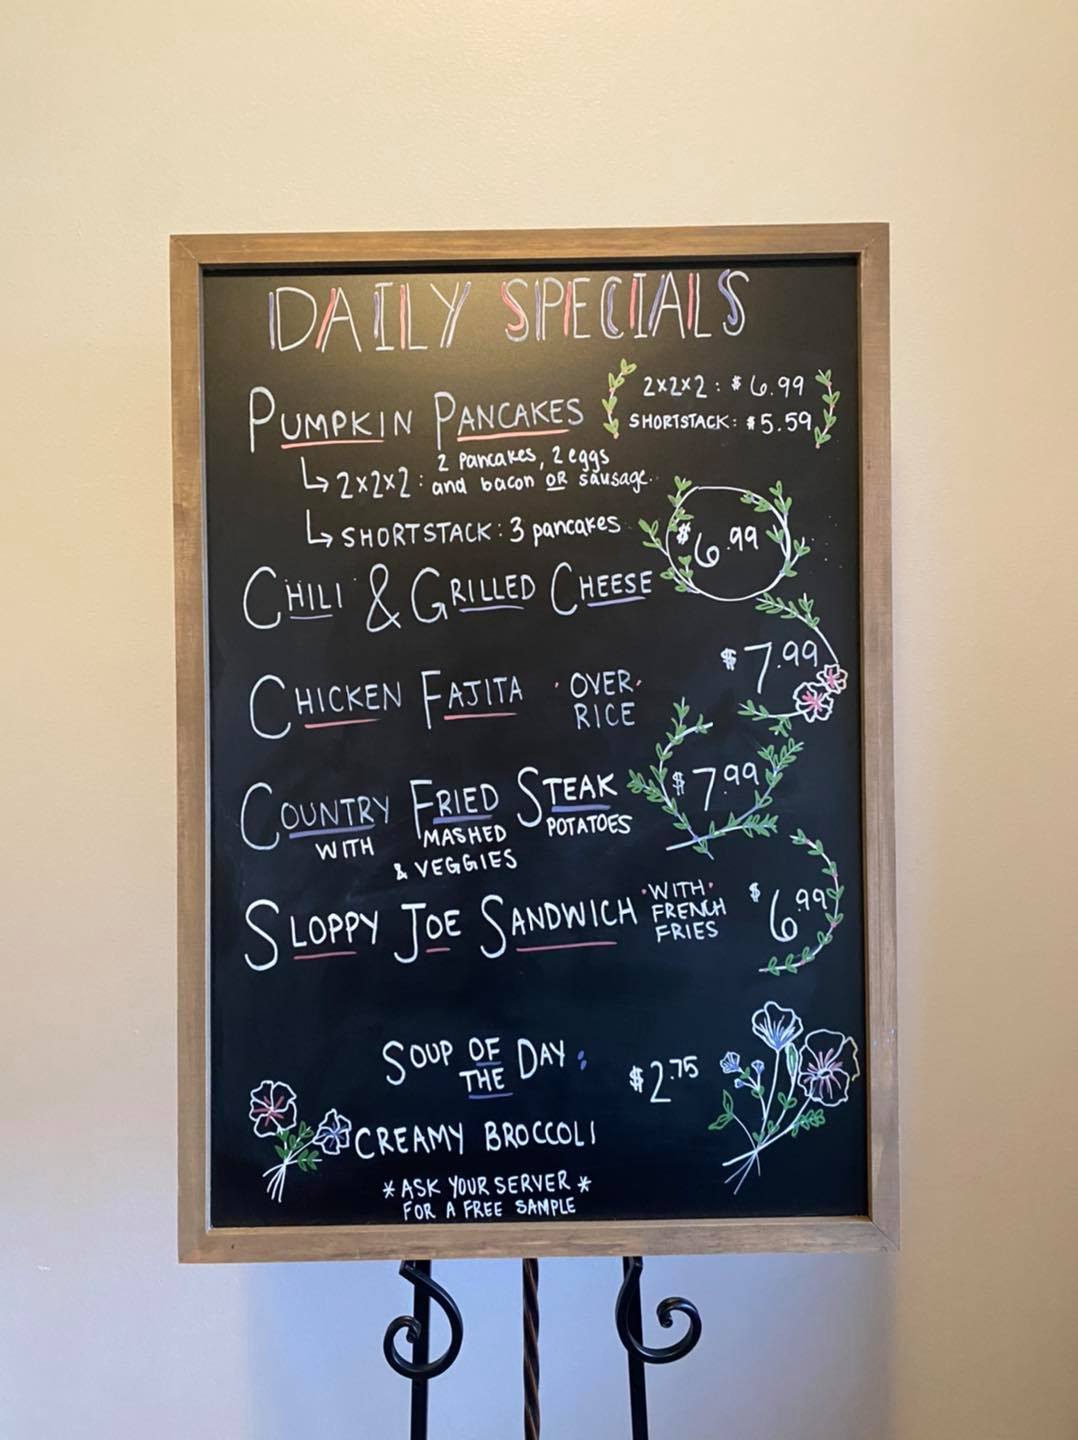 DAILY SPECIALS
PUMPKIN PANCAKES
2x2x2: $6.99
SHORTSTACK: $5.59
↳ 2x2x2: 2 pancakes, 2 eggs
and bacon OR sausage
↳ SHORTSTACK: 3 pancakes
CHILI & GRILLED CHEESE $6.99
CHICKEN FAJITA · OVER· $7.99
RICE
COUNTRY FRIED STEAK $7.99
WITH MASHED POTATOES
& VEGGIES
SLOPPY JOE SANDWICH ·WITH· $6.99
FRENCH
FRIES
SOUP OF DAY: $2.75
THE
CREAMY BROCCOLI
*ASK YOUR SERVER*
FOR A FREE SAMPLE